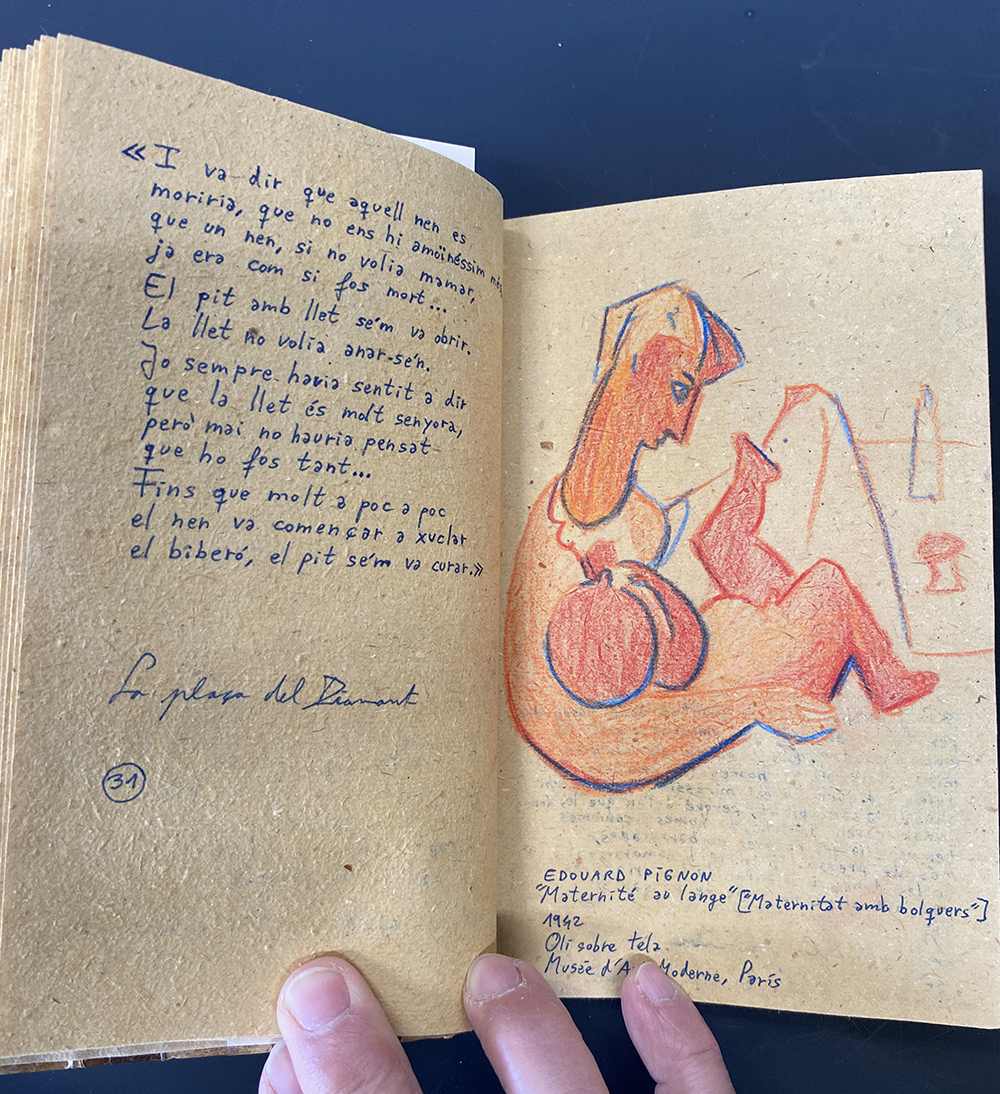 «I va dir que aquell nen es
moriria, que no ens hi amoïnéssim més
que un nen, si no volia mamar,
ja era com si fos mort...
El pit amb llet se'm va obrir.
La llet no volia anar-se'n.
Jo sempre havia sentit a dir
que la llet és molt senyora,
però mai no hauria pensat
que ho fos tant...
Fins que molt a poc a poc
el nen va començar a xuclar
el biberó, el pit se'm va curar.»
La plaça del Diamant
31
EDOUARD PIGNON
"Maternité au lange" ["Maternitat amb bolquers"]
1942
Oli sobre tela
Musée d'A Moderne, París